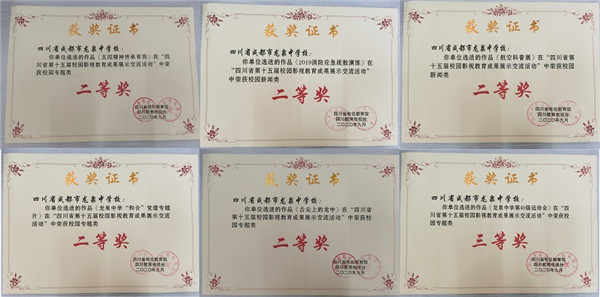 获奖证书
四川省成都市龙泉中学校：
你单位选送的作品《五四精神传承有我》在“四
川省第十五届校园影视教育成果展示交流活动”中荣
获校园专题类
二等奖
四川省电化教育馆
四川教育电视台
二〇二〇年九月
获奖证书
四川省成都市龙泉中学校：
你单位选送的作品《2019消防应急疏散演练》在
“四川省第十五届校园影视教育成果展示交流活动”
中荣获校园新闻类
二等奖
四川省电化教育馆
四川教育电视台
二〇二〇年九月
获奖证书
四川省成都市龙泉中学校：
你单位选送的作品《航空科普展》在“四川省第
十五届校园影视教育成果展示交流活动”中荣获校园
新闻类
二等奖
四川省电化教育馆
四川教育电视台
二〇二〇年九月
获奖证书
四川省成都市龙泉中学校：
你单位选送的作品《龙泉中学“和合”党建专题
片》在“四川省第十五届校园影视教育成果展示交流
活动”中荣获校园专题类
二等奖
四川省电化教育馆
四川教育电视台
二〇二〇年九月
获奖证书
四川省成都市龙泉中学校：
你单位选送的作品《舌尖上的龙中》在“四川省
第十五届校园影视教育成果展示交流活动”中荣获校
园专题类
二等奖
四川省电化教育馆
四川教育电视台
二〇二〇年九月
获奖证书
四川省成都市龙泉中学校：
你单位选送的作品《龙泉中学第49届运动会》在“四
川省第十五届校园影视教育成果展示交流活动”中荣获校
园专题类
三等奖
四川省电化教育馆
四川教育电视台
二〇二〇年九月